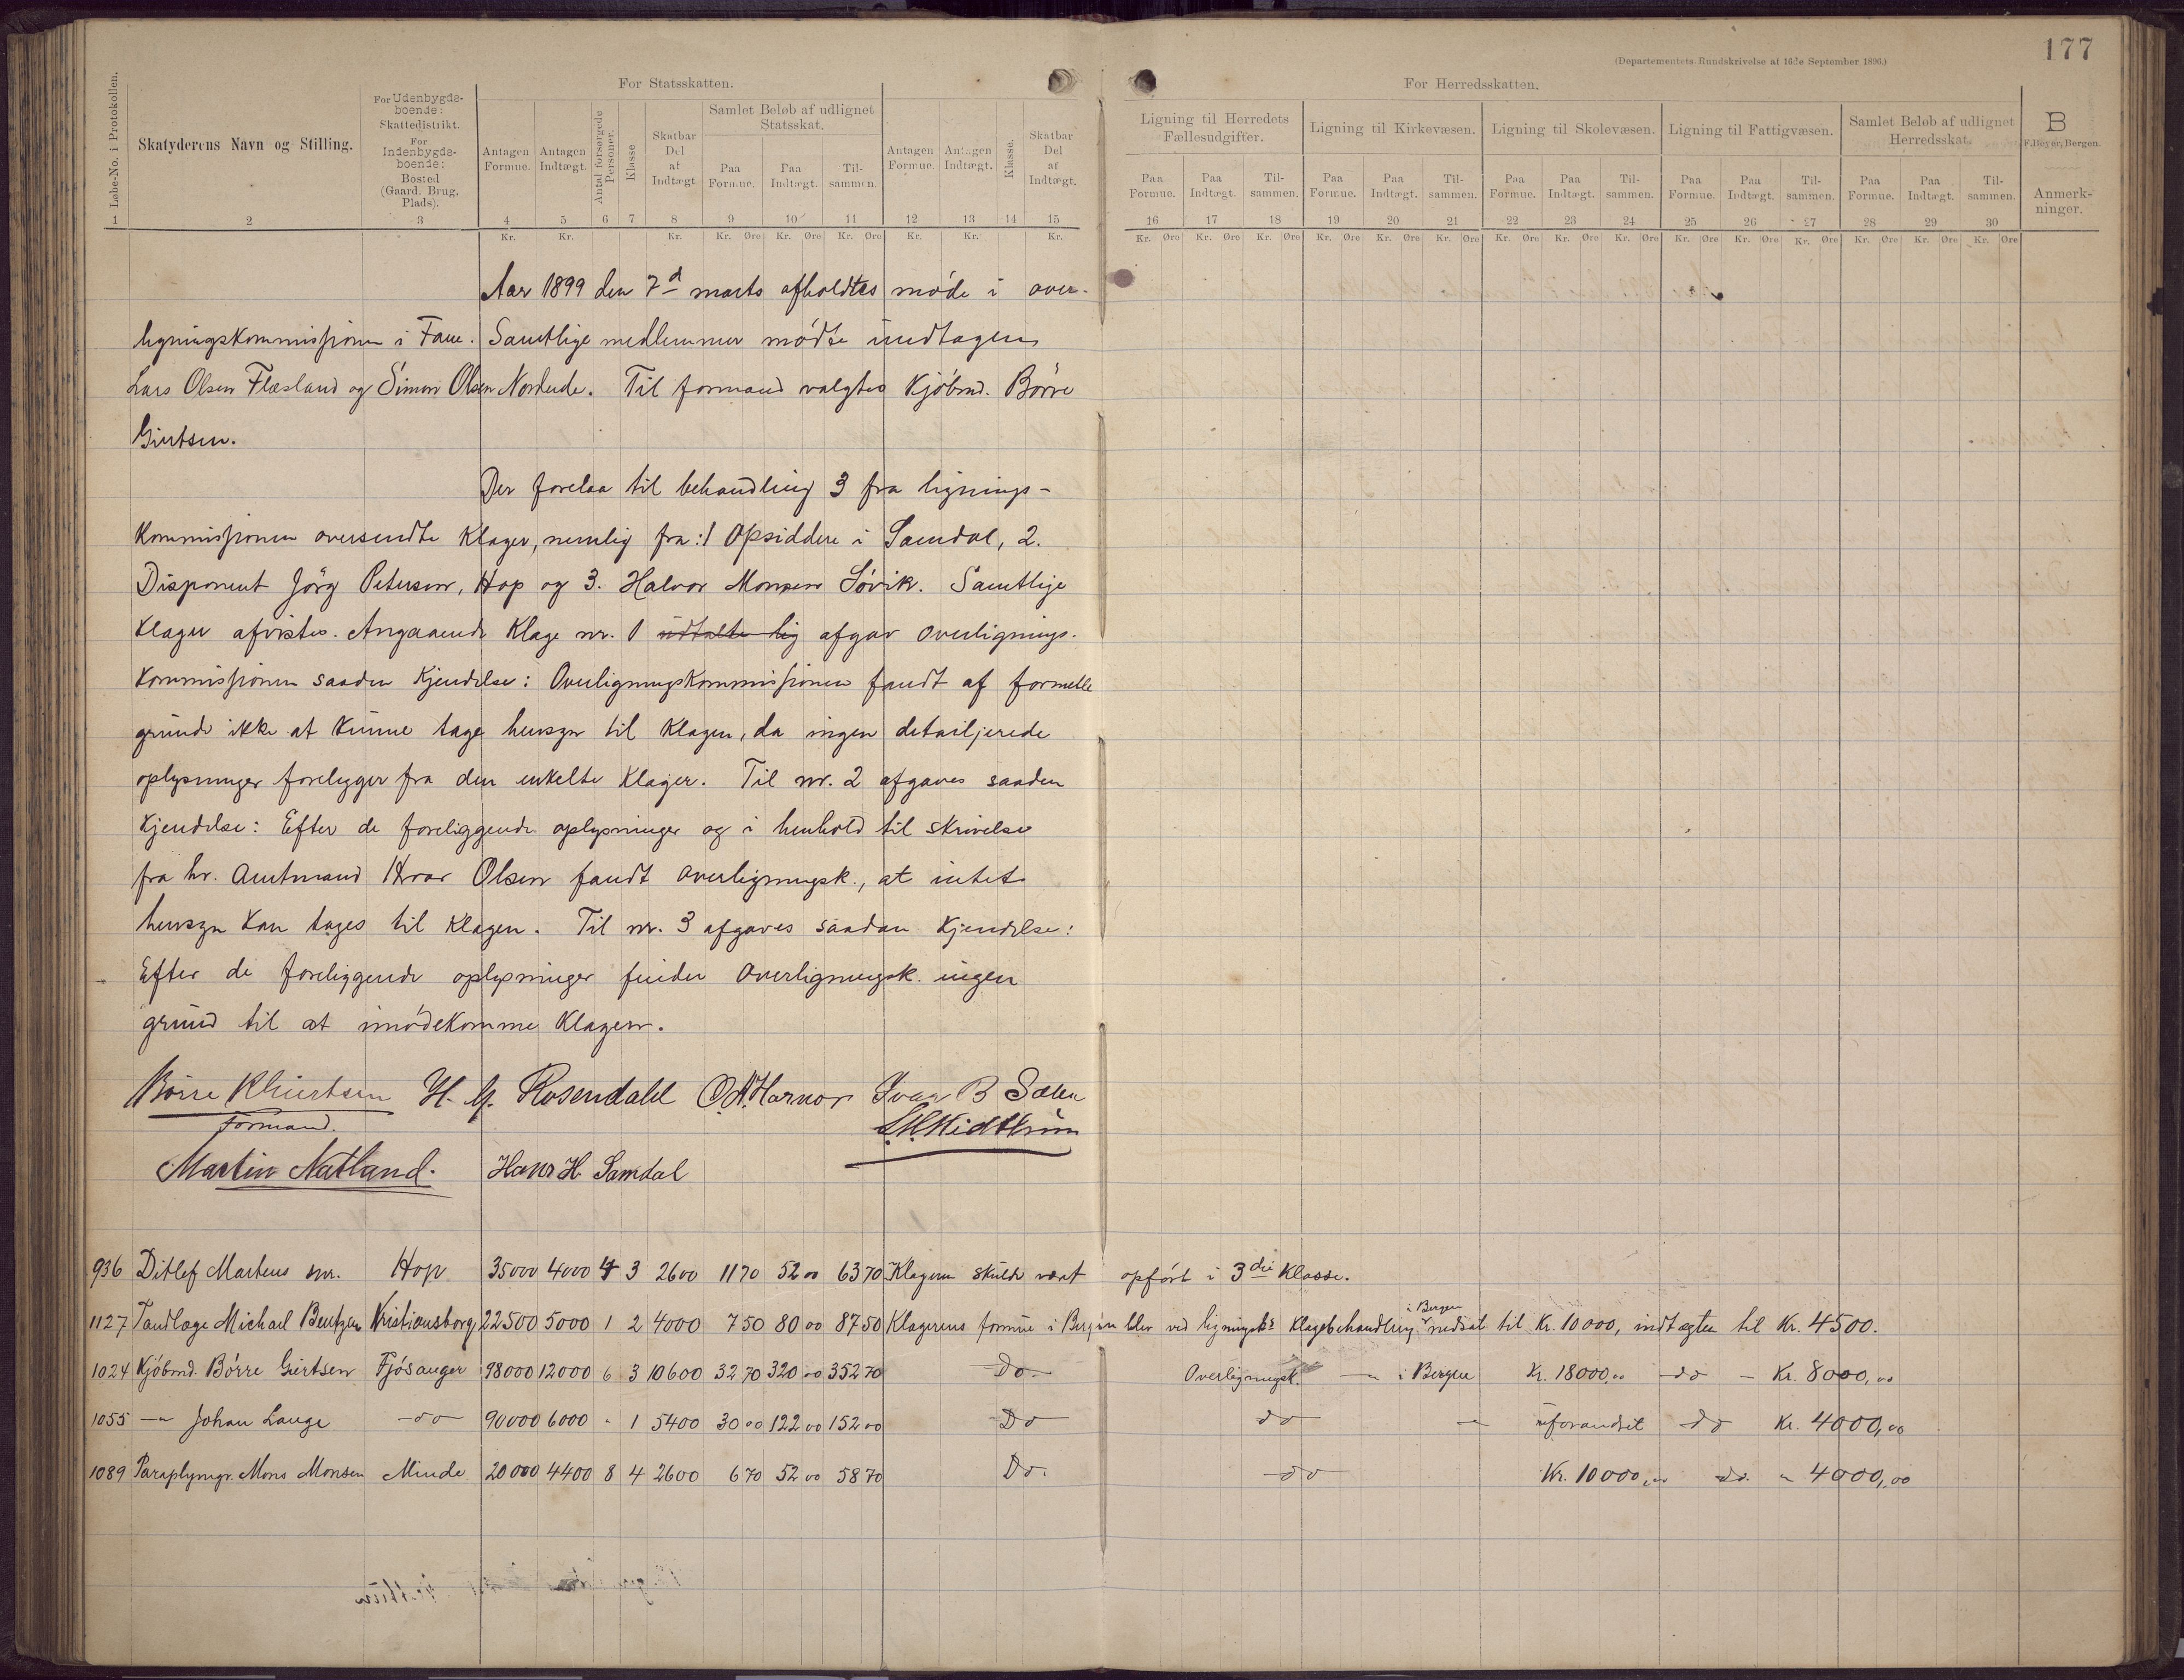 177
(Departementets Rundskrivelse af 16de September 1896.)
For Statsskatten.
For Herredsskatten.
Løbe-No. i Protokollen.
Skatyderens Navn og Stilling.
For Udenbygds-
boende:
Skattedistrikt.
For
Indenbygds-
boende:
Bosted
(Gaard. Brug,
Plads).
Antagen Formue.
Antagen Indtægt.
Antal forsørgede Personer.
Klasse
Skatbar Del af Indtægt
Samlet Beløb af udlignet Statsskat.
Paa Formue.
Paa Indtægt.
Til-sammen.
Antagen Formue.
Antagen Indtægt.
Klasse.
Skatbar Del af Indtægt.
Ligning til Herredets Fællesudgifter.
Ligning til Kirkevæsen.
Ligning til Skolevæsen.
Ligning til Fattigvæsen.
Samlet Beløb af udlignet Herredsskat.
Paa Formue. Paa Indtægt. Til-sammen. Paa Formue. Paa Indtægt. Til-sammen. Paa Formue. Paa Indtægt. Til-sammen. Paa Formue. Paa Indtægt. Til-sammen. Paa Formue. Paa Indtægt. Til-sammen.
B
F. Beyer, Bergen.
Anmerk-
ninger.
1 2 3 4 5 6 7 8 9 10 11 12 13 14 15 16 17 18 19 20 21 22 23 24 25 26 27 28 29 30
Kr. Kr. Kr. Kr. Øre Kr. Øre Kr. Øre Kr. Kr. Kr. Kr. Øre Kr. Øre Kr. Øre Kr. Øre Kr. Øre Kr. Øre Kr. Øre Kr. Øre Kr. Øre Kr. Øre Kr. Øre Kr. Øre Kr. Øre Kr. Øre Kr. Øre
Aar 1899 den 7d marts afholdtes møde i over-
ligningskommissionen i Fane. Samtlige medlemmer mødte undtagen
Lars Olsen Flæsland og Simon Olsen Nordeide. Til formand valgtes Kjøbmd. Børre
Giertsen.
Der forelaa til behandling 3 fra lignings-
kommissionen oversendte klager, nemlig fra: 1 Opsiddere i Samdal, 2.
Disponent Jörg Petersen, Hop og 3. Halvor Monsen Søvik. Samtlige
klager afvistes. Angaaende klage nr. 1 udtalte lig afgav overlignings-
kommissionen saaden kjendelse: Overligningskommissionen fandt af formelle
grunde ikke at kunne tage hensyn til klagen, da ingen detailjerede
oplysninger foreligger fra den enkelte klager. Til nr. 2 afgaves saaden
kjendelse: Efter de foreliggende oplysninger og i henhold til skrivelse
fra hr. Amtmand Hroar Olsen fandt overligningsk., at intet
hensyn kan tages til klagen. Til nr. 3 afgaves saadan kjendelse:
Efter de foreliggende oplysninger finder overligningsk. ingen
grund til at imødekomme klagen.
Börre Giertsen H. G. Rosendahl O. A. Harnor Ivar B Sælen
Formand. Midttun
Martin Natland. Hans H. Samdal
936 Ditlef Martens snr. Hop 35000 4000 4 3 2600 11 70 52 00 63 70 Klageren skulde vært opført i 3die Klasse.
1127 Tandlæge Michael Bentzen Kristiansborg 22500 5000 1 2 4000 7 50 80 00 87 50 Klagerens formue i Bergen blev ved ligningsk's klagebehandling i Bergen nedsat til Kr. 10 000, indtægten til Kr. 4500.
1024 Kjøbmd. Børre Giertsen Fjøsanger 98000 12000 6 3 10600 32 70 320 00 352 70 Do. Overligningsk. — " i Bergen Kr. 18000,00 do — Kr. 8000,00
1055 — " Johan Lange — do — 90000 6000 " 1 5400 30 00 122 00 152 00 Do do — " uforandret do Kr. 4000,00
1089 Paraplymgr. Mons Monsen Minde 20000 4400 8 4 2600 6 70 52 00 58 70 Do. do Kr. 10000,00 do. " 4000,00